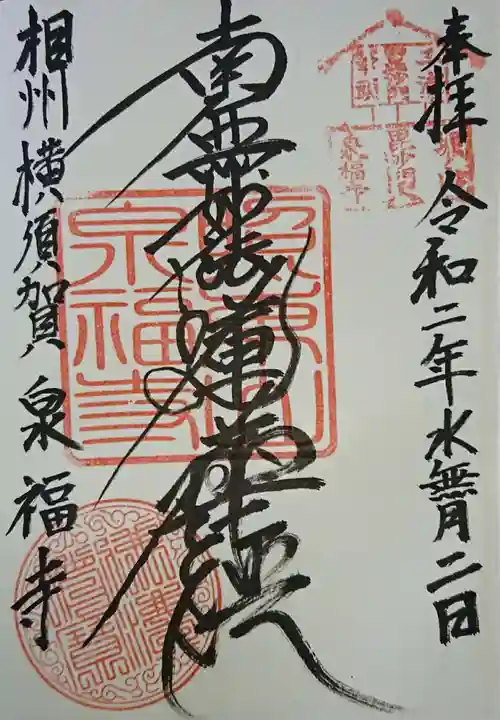 奉拝 令和二年水無月二日
南無妙法蓮華経
相州横須賀 泉福寺
泉福寺